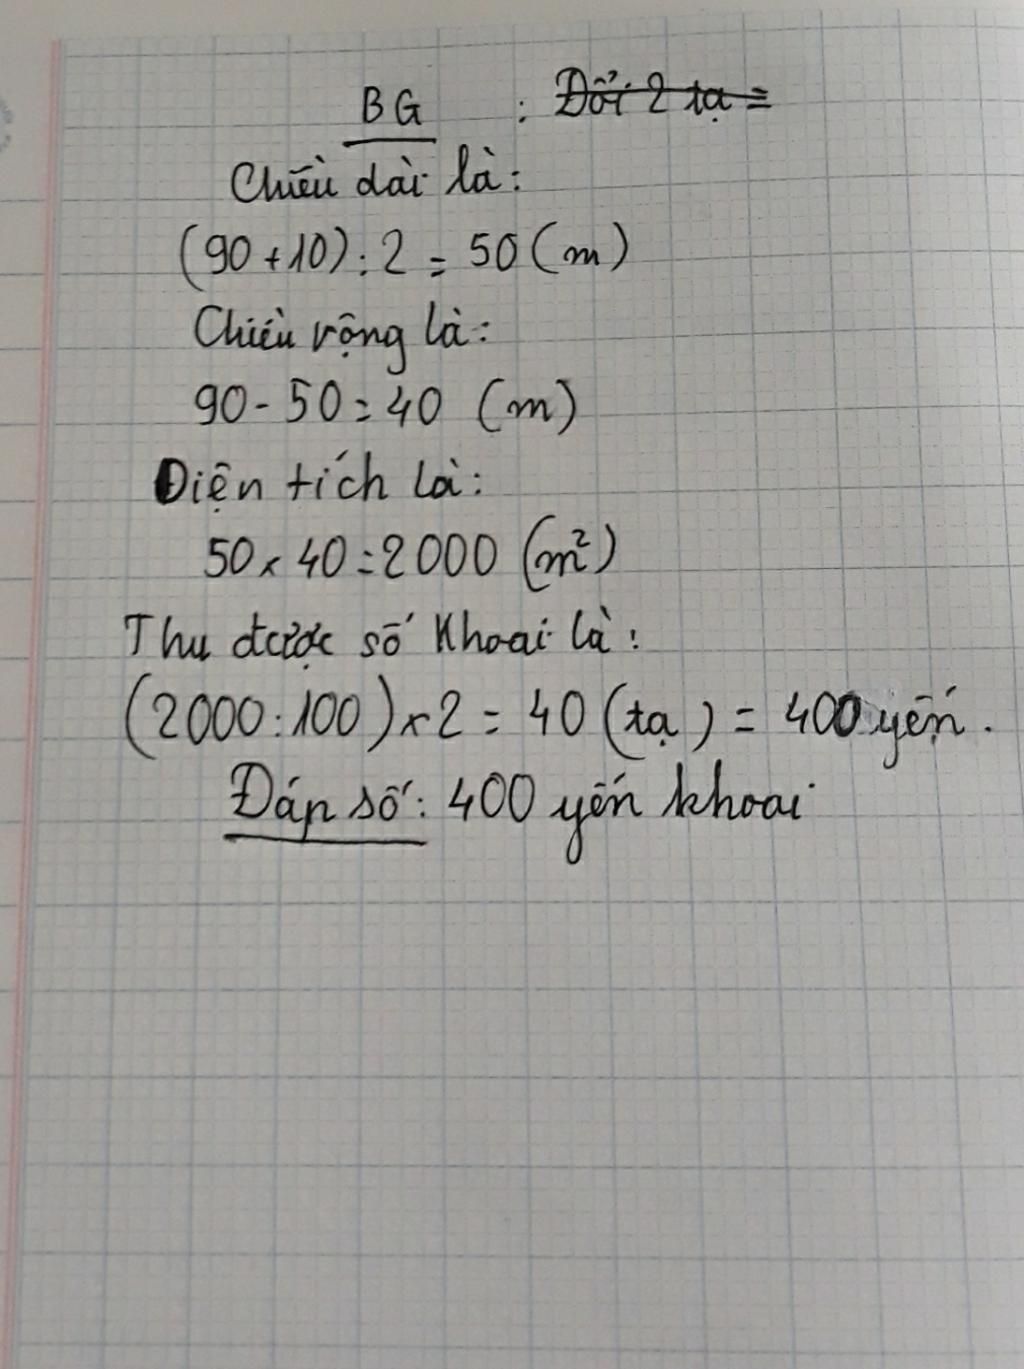 BG : Đổi 2 tạ =
Chiều dài là:
(90 + 10) : 2 = 50 (m)
Chiều rộng là:
90 - 50 = 40 (m)
Diện tích là:
50 x 40 = 2000 (m²)
Thu được số khoai là:
(2000 : 100) x 2 = 40 (tạ) = 400 yến.
Đáp số: 400 yến khoai